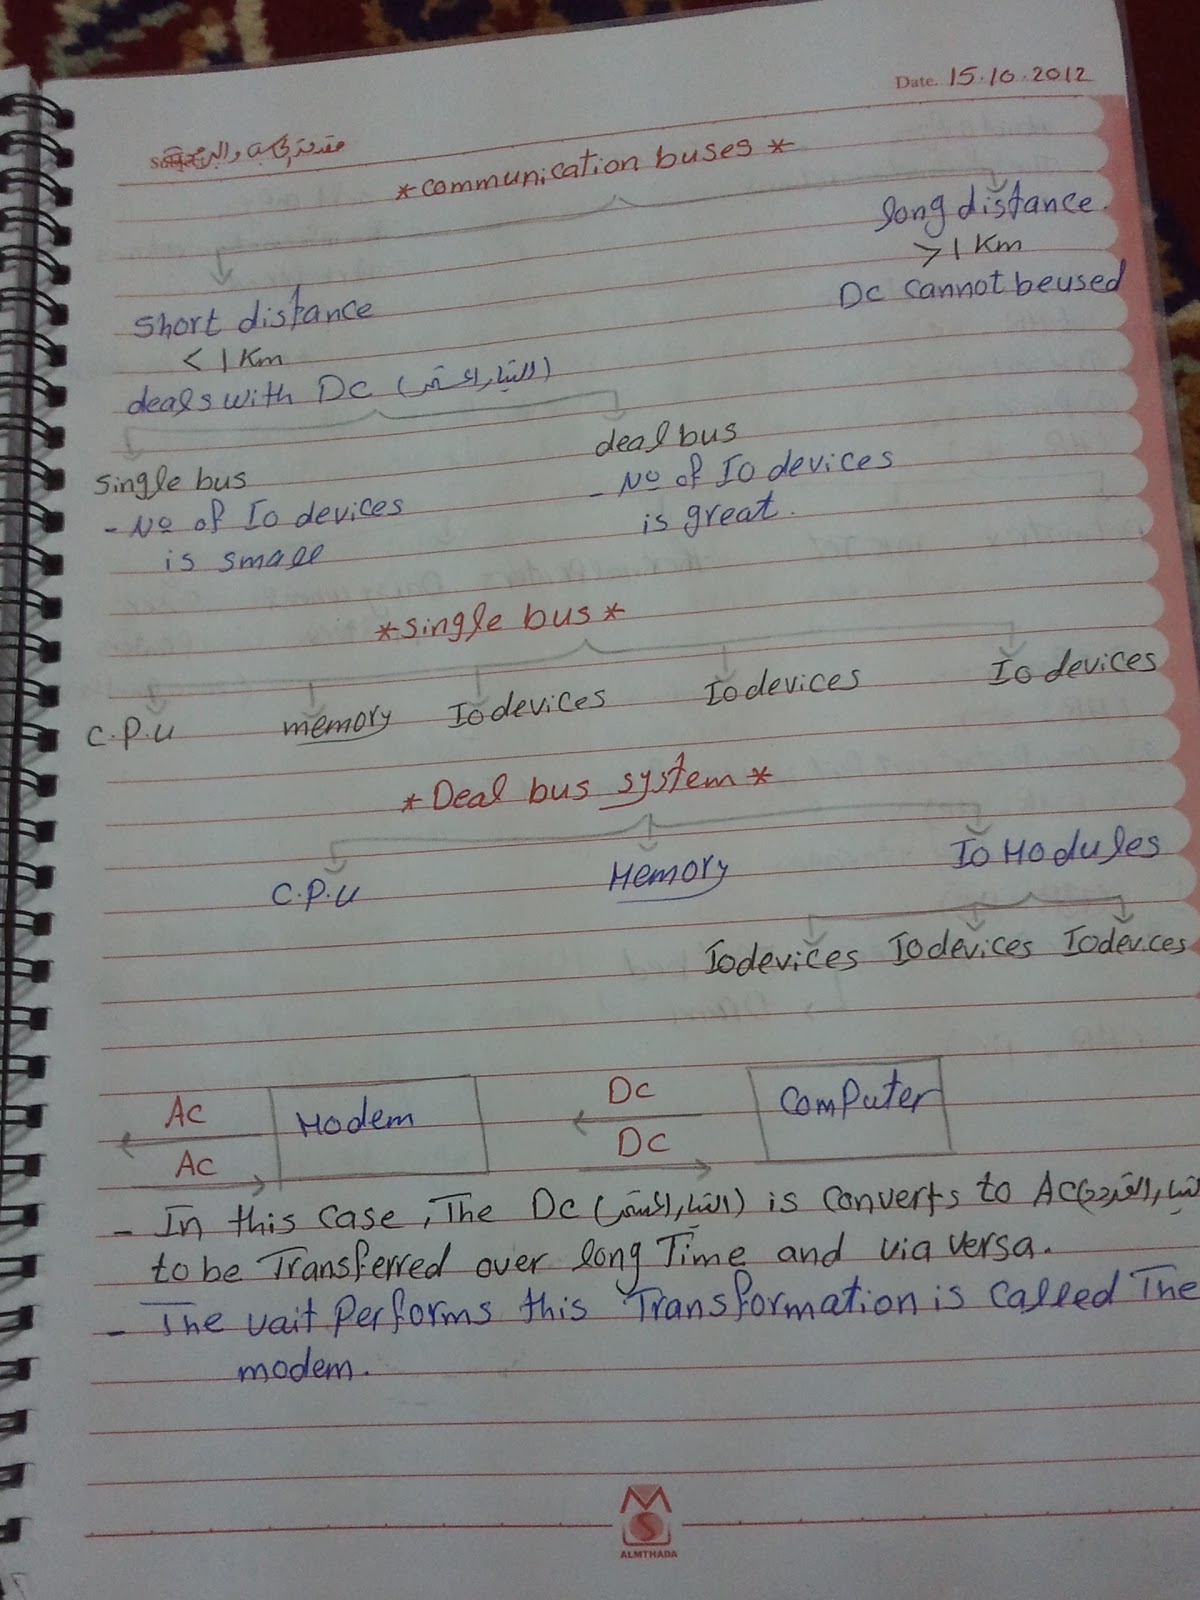 Date. 15.10.2012
مقدمة
*communication buses*
long distance.
> 1 Km
Dc cannot be used
short distance
< 1 Km
deals with Dc (التيار المستمر)
single bus
- No of Io devices
is small
deal bus
- No of Io devices
is great.
*single bus*
C.P.U memory Io devices Io devices Io devices
*Deal bus system*
C.P.U Memory Io Modules
Io devices Io devices Io devices
Ac Modem Dc Computer
Ac Dc
- In this case, The Dc (التيار المستمر) is converts to Ac (التيار المتردد
to be Transferred over long Time and via versa.
- The vait Performs this Transformation is called The
modem.
ALMTHADA